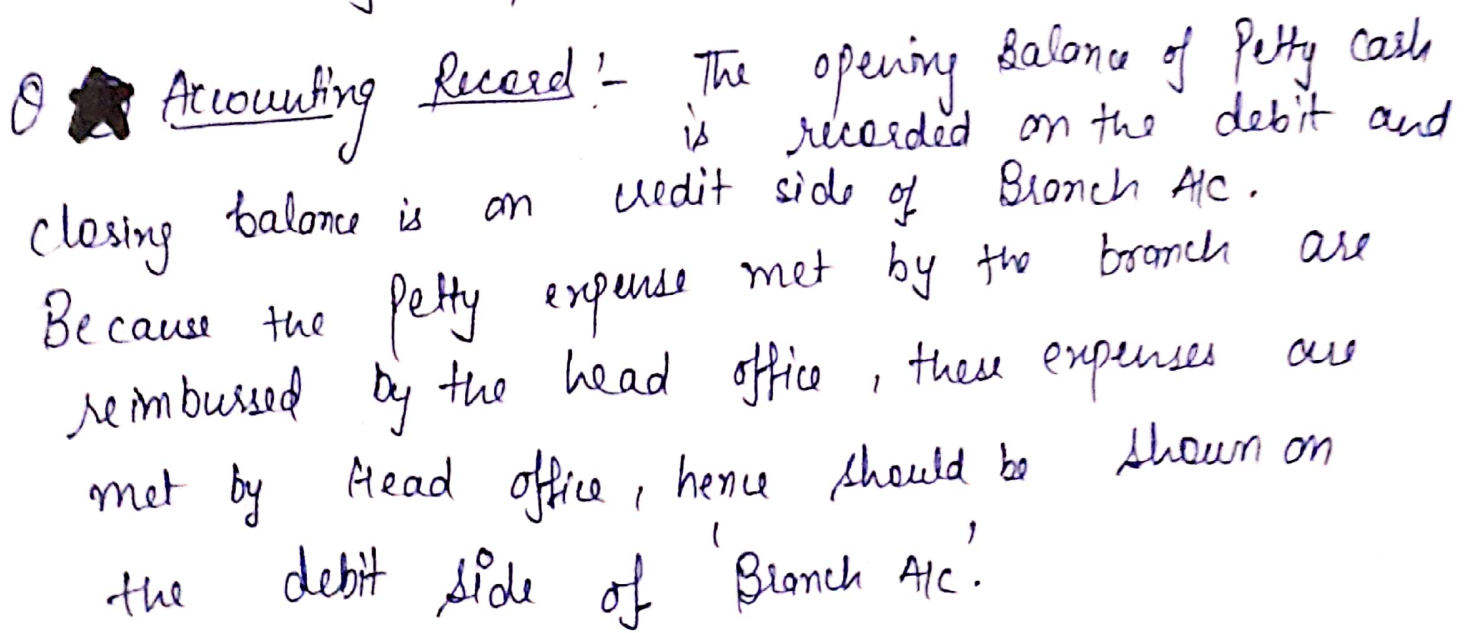 Accounting Record :- The opening Balance of Petty Cash
is recorded on the debit and
closing balance is on credit side of Branch A/C.
Because the Petty expense met by the branch are
reimbussed by the head office, these expenses are
met by Head office, hence should be shown on
the debit side of 'Branch A/C'.